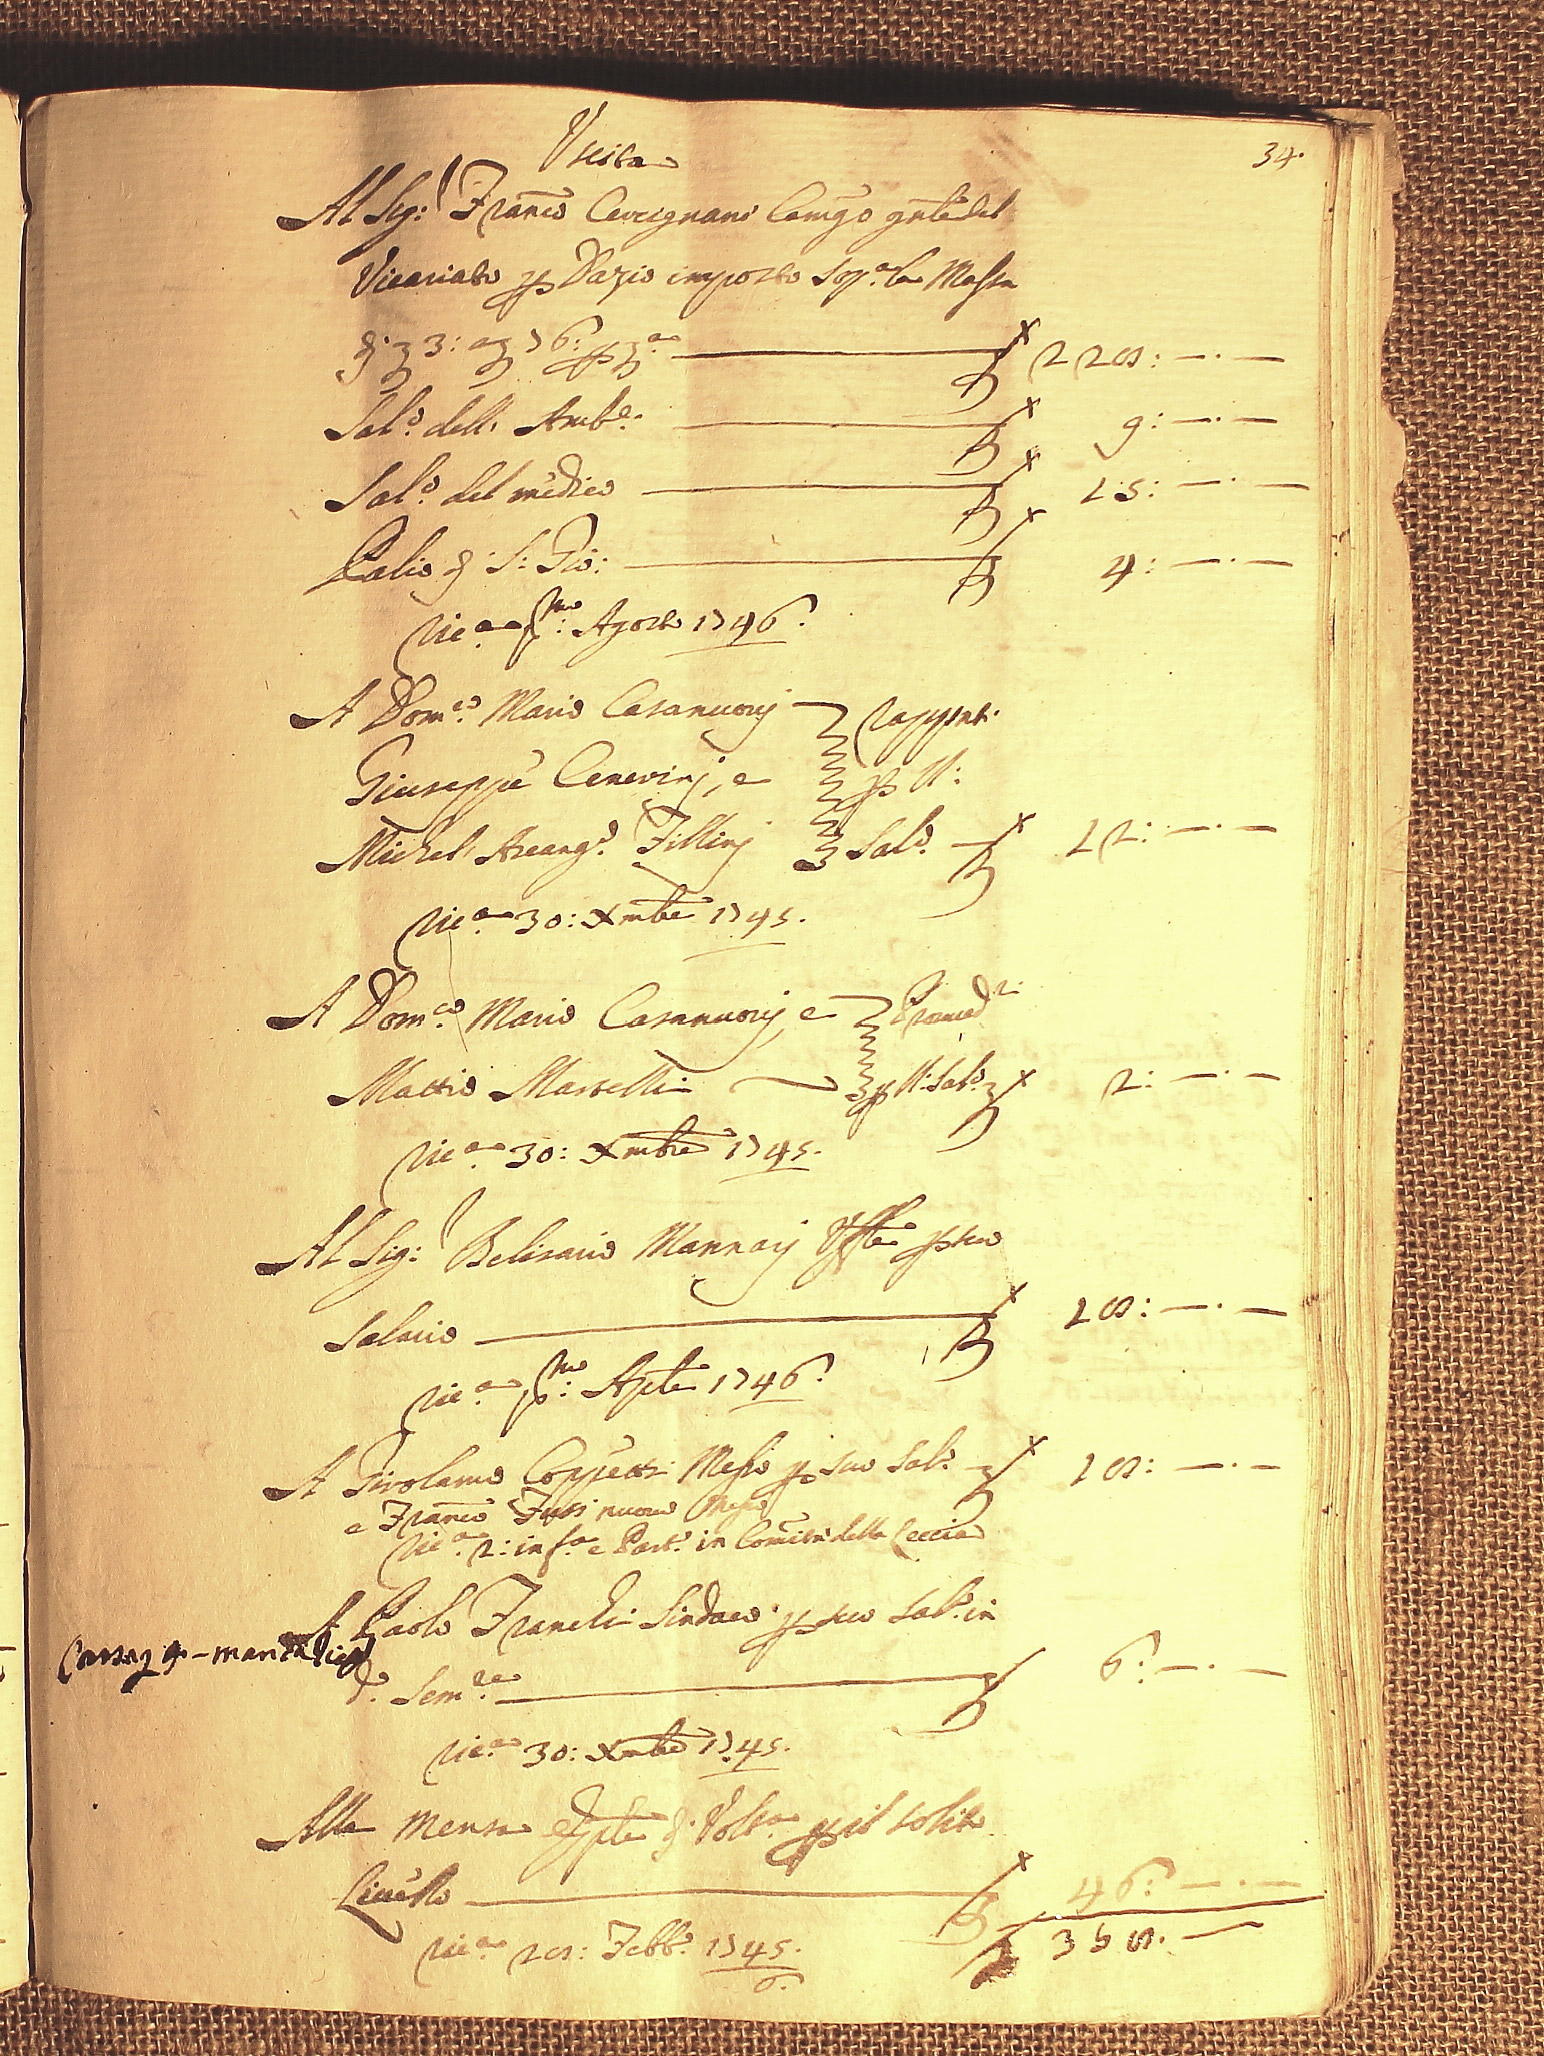 Uscita
34.
Al Sig:r Franco Cevcignani Camgo gnle del
Vicariato p Dazio imposto sop.a la Massa
220: —.—
Sal.o delli Amb.e 9: —.—
Sal.o del medico 15: —.—
Palio di S: Gio: 4: —.—
Ric.a p.mo: Agosto 1746.
A Dom.co Mario Casanuovj rappnti
Giuseppe Cenevinj, e p il:
Michel Arcang.o Fillinj Sal.o 12: —.—
Ric.a 30: Xmbre 1745.
A Dom.co Mario Casanuovj, e Proved.ri
Mattio Martelli p il: Sal.o 2: —.—
Ric.a 30: Xmbre 1745.
Al Sig:r Belisario Mannaj p suo
Salario 10: —.—
Ric.a p.mo: Aple 1746.
A Girolamo Coppetti Messo p suo Sal.o 10: —.—
e Franco Fussi nuovo Messo
Ric.a 2: in f.a e Part.a in Comità della Leccia
A Paolo Franchi Sindaco p suo Sal.o in
d.o Sem.re 6: —.—
Ric.a 30: Xmbre 1745.
Alla Mensa di Volt.a p il solito
Livello 46: —.—
Ric.a 20: Febb.o 1745.
6.
350. —